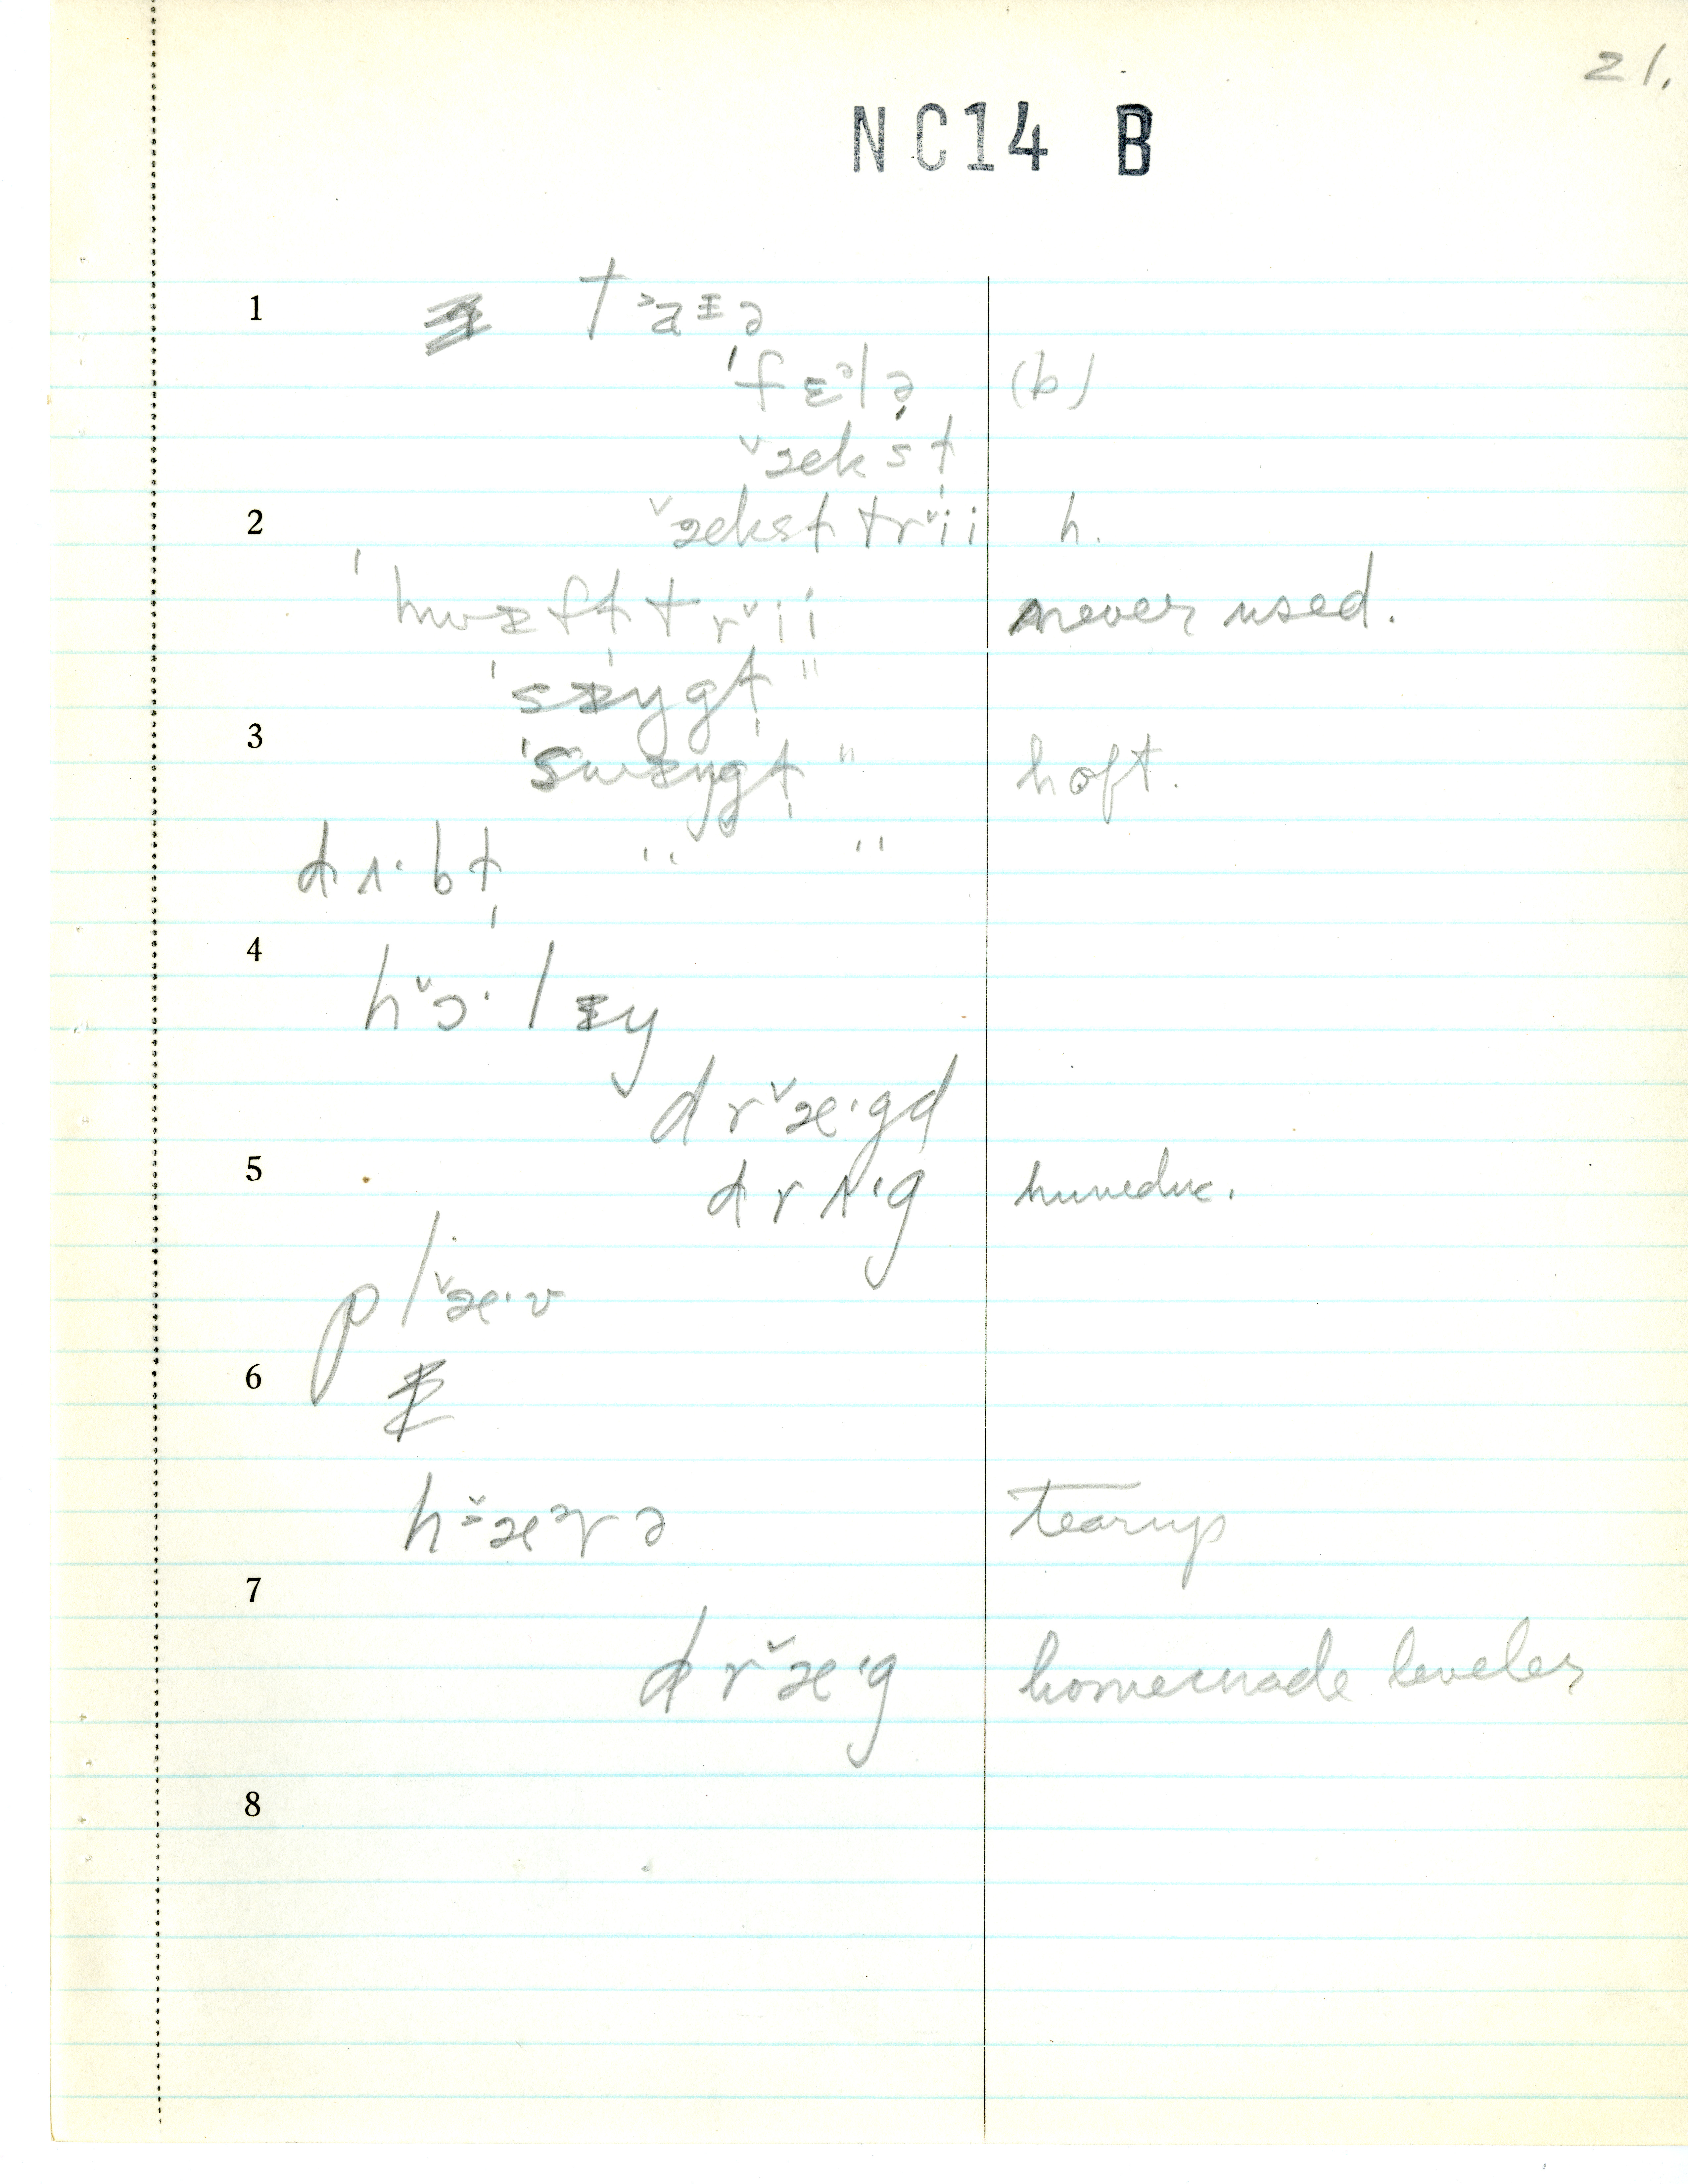 21.
NC14 B
1 t ɜa ᵻ ə
ˈf ɛᵊl ə̦ (b)
ˇæks t̩
2 ˇækst trˇii h.
ˈhwᵻft̩ trˇii never used.
ˈsᵻygt̩ "
3 ˈswᵻygt̩ " hoft.
d ʌ· b t̩ " "
4 hˇɔ· l ᵻy
d rˇæ·gd
5 d r ʌ·g
p lˇæ·ʊ
6
hˇæᵊr ə tearup
7
d rˇæ·g homemade leveler
8